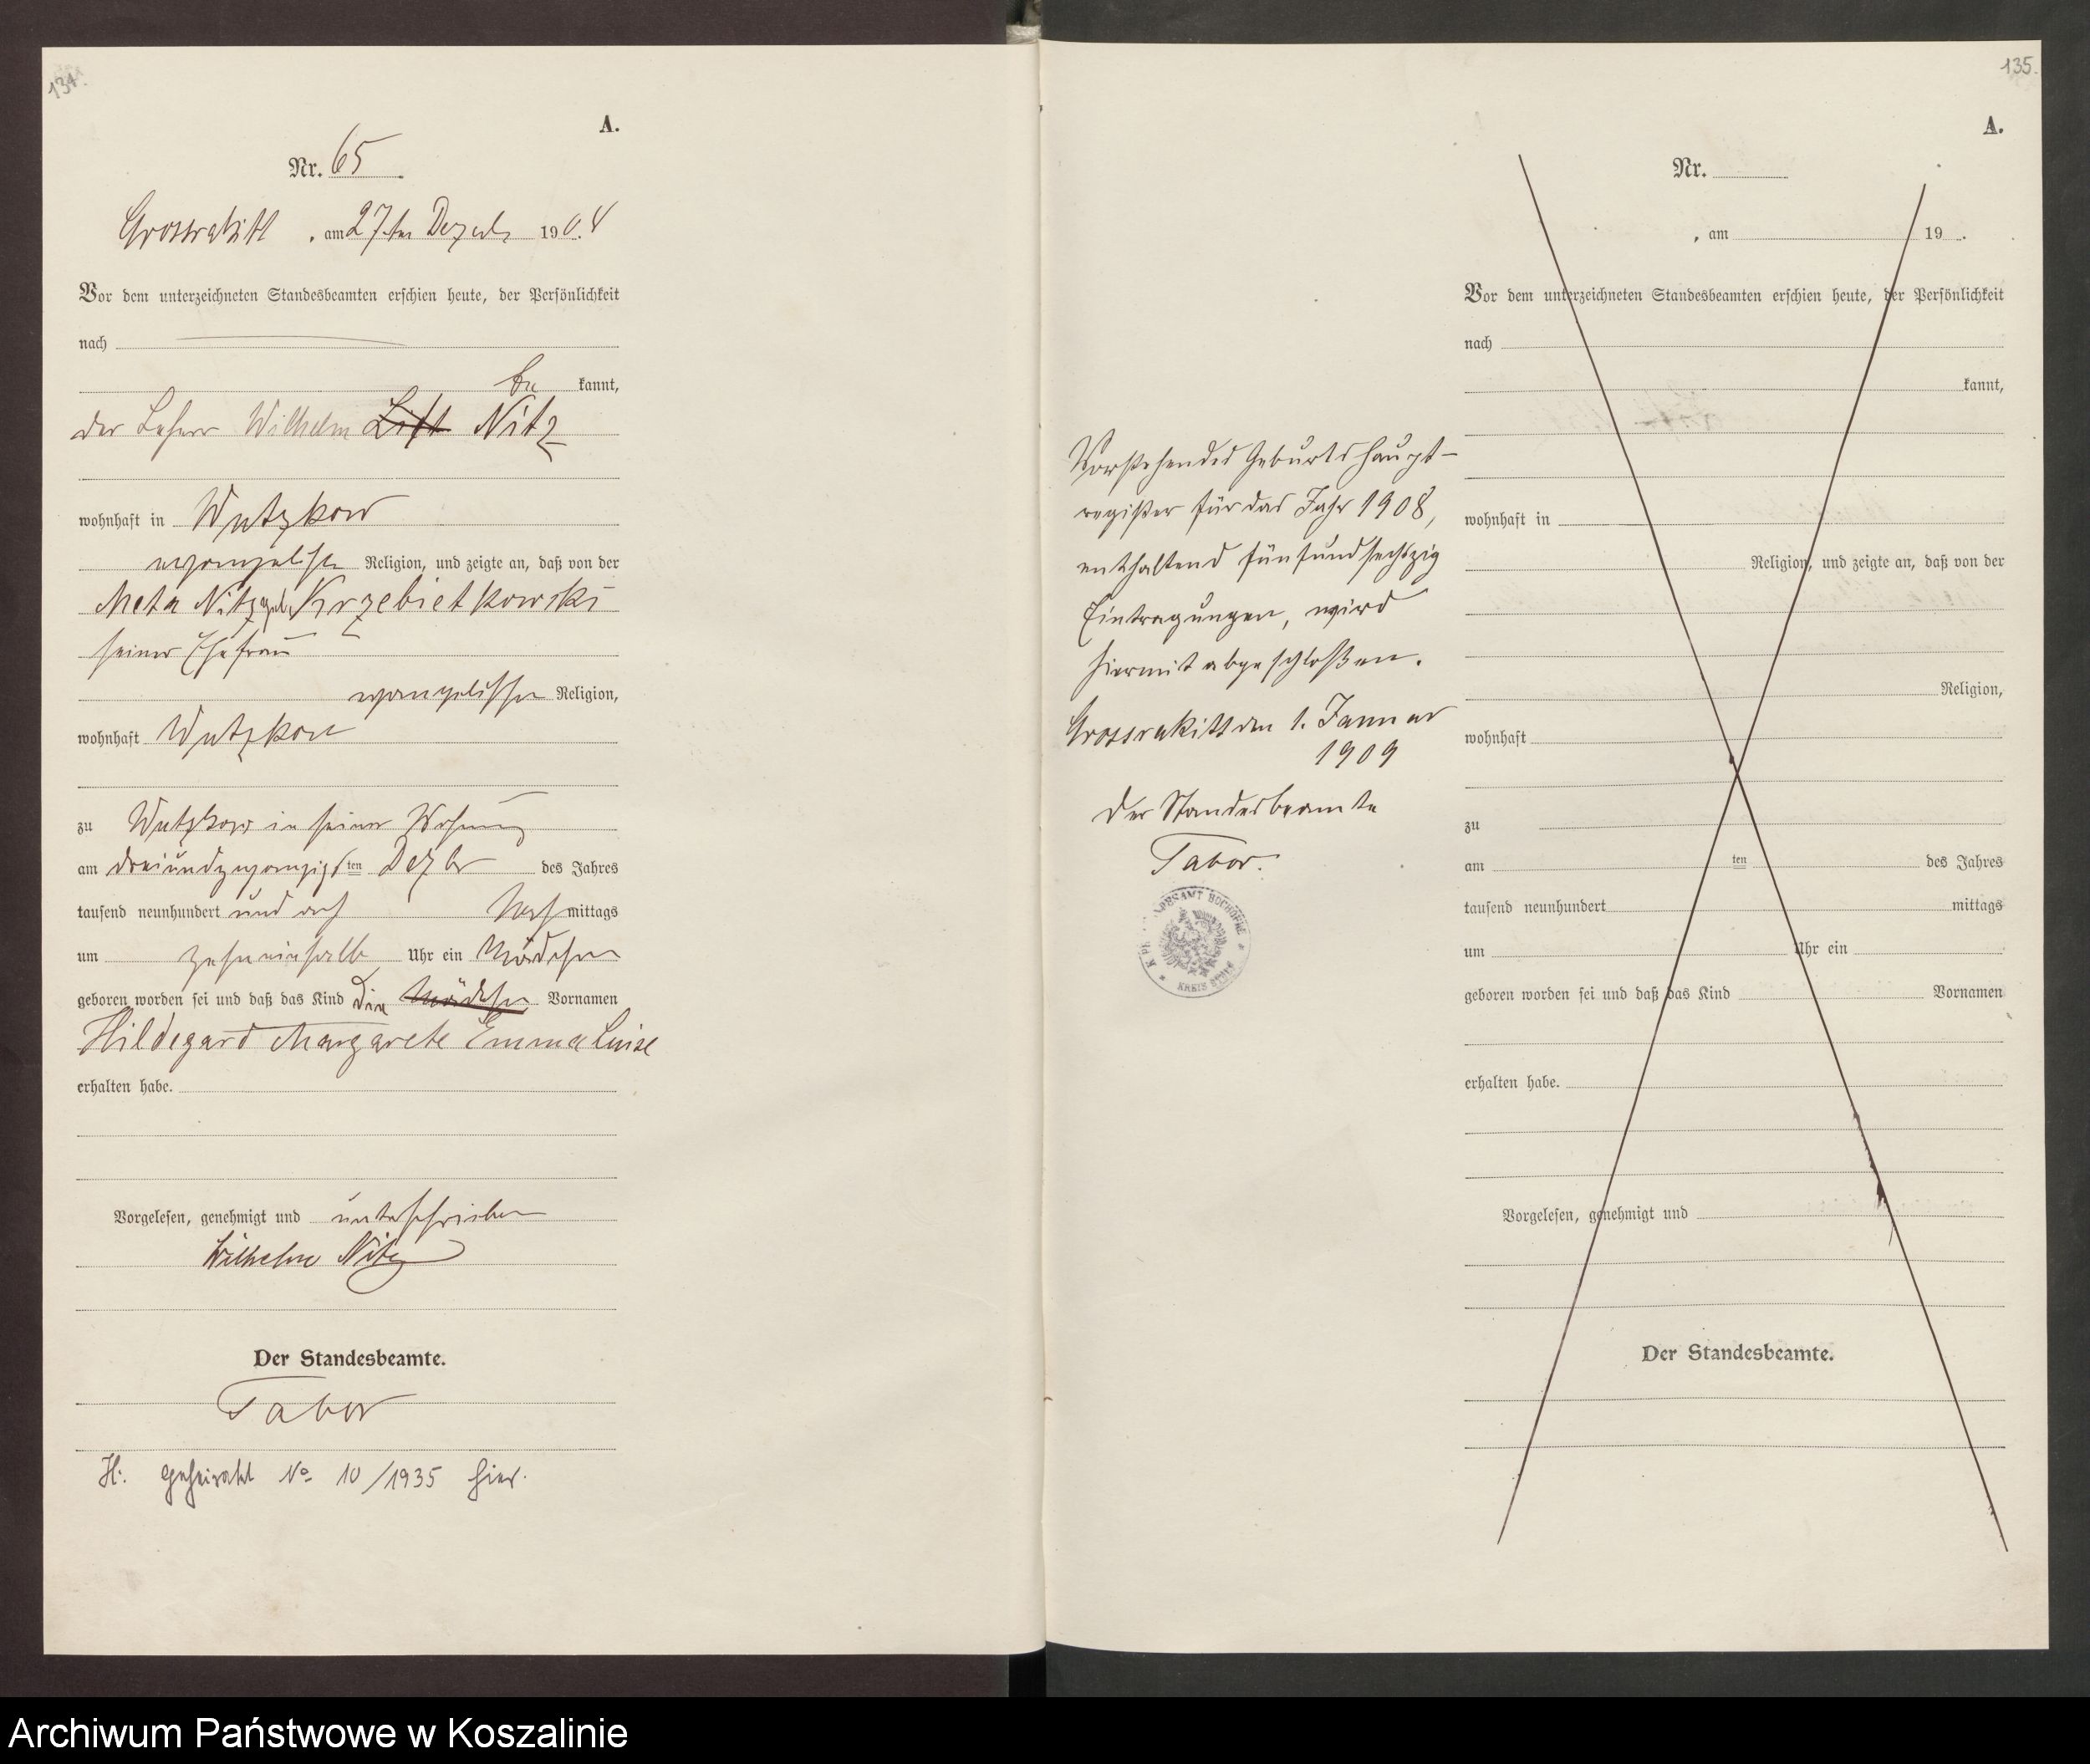 134.
A.
Nr. 65
Grossrakitt, am 27.ten Dezbr 1908
Vor dem unterzeichneten Standesbeamten erschien heute, der Persönlichkeit
nach
be kannt,
der Lehrer Wilhelm Nitz
wohnhaft in Wutzkow
evangelischer Religion, und zeigte an, daß von der
Meta Nitz geb. Krzebietkowski
seiner Ehefrau
evangelischer Religion,
wohnhaft Wutzkow
zu Wutzkow in seiner Wohnung
am dreiundzwanzigsten Dezbr des Jahres
tausend neunhundert und acht Nachmittags
um zehneinhalb Uhr ein Mädchen
geboren worden sei und daß das Kind die Mädchen Vornamen
Hildegard Margarete Emma Luise
erhalten habe.
Vorgelesen, genehmigt und unterschrieben
Wilhelm Nitz
Der Standesbeamte.
Tabor
H: geheiratet No 10/1935 hier.
135.
A.
Nr.
, am 19 .
Vor dem unterzeichneten Standesbeamten erschien heute, der Persönlichkeit
nach
kannt,
wohnhaft in
Religion, und zeigte an, daß von der
Religion,
wohnhaft
zu
am ten des Jahres
tausend neunhundert mittags
um Uhr ein
geboren worden sei und daß das Kind Vornamen
erhalten habe.
Vorgelesen, genehmigt und
Der Standesbeamte.
Vorstehendes Geburtshaupt-
register für das Jahr 1908,
enthaltend fünfundsechzig
Eintragungen, wird
hiermit abgeschloßen.
Grossrakitt den 1. Januar
1909
Der Standesbeamte
Tabor.
KREIS
Archiwum Państwowe w Koszalinie